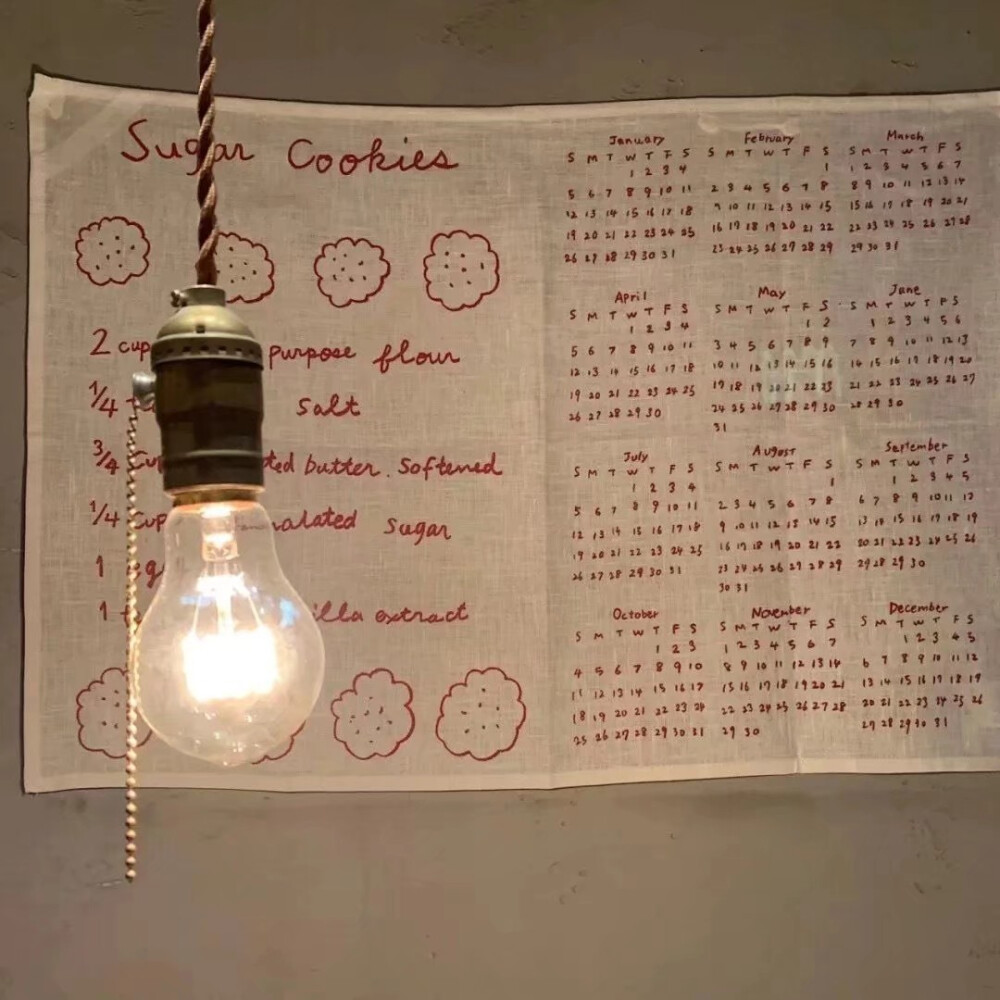 Sugar Cookies
2 cup purpose flour
1/4 salt
3/4 cup ted butter. softened
1/4 cup nalated sugar
1 eg
1 illa extract
January
S M T W T F S
1 2 3 4
5 6 7 8 9 10 11
12 13 14 15 16 17 18
19 20 21 22 23 24 25
26 27 28 29 30 31
February
S M T W T F S
1
2 3 4 5 6 7 8
9 10 11 12 13 14 15
16 17 18 19 20 21 22
23 24 25 26 27 28 29
March
S M T W T F S
1 2 3 4 5 6 7
8 9 10 11 12 13 14
15 16 17 18 19 20 21
22 23 24 25 26 27 28
29 30 31
April
S M T W T F S
1 2 3 4
5 6 7 8 9 10 11
12 13 14 15 16 17 18
19 20 21 22 23 24 25
26 27 28 29 30
May
S M T W T F S
1 2
3 4 5 6 7 8 9
10 11 12 13 14 15 16
17 18 19 20 21 22 23
24 25 26 27 28 29 30
31
June
S M T W T F S
1 2 3 4 5 6
7 8 9 10 11 12 13
14 15 16 17 18 19 20
21 22 23 24 25 26 27
28 29 30
July
S M T W T F S
1 2 3 4
5 6 7 8 9 10 11
12 13 14 15 16 17 18
19 20 21 22 23 24 25
26 27 28 29 30 31
August
S M T W T F S
1
2 3 4 5 6 7 8
9 10 11 12 13 14 15
16 17 18 19 20 21 22
23 24 25 26 27 28 29
30 31
September
S M T W T F S
1 2 3 4 5
6 7 8 9 10 11 12
13 14 15 16 17 18 19
20 21 22 23 24 25 26
27 28 29 30
October
S M T W T F S
1 2 3
4 5 6 7 8 9 10
11 12 13 14 15 16 17
18 19 20 21 22 23 24
25 26 27 28 29 30 31
November
S M T W T F S
1 2 3 4 5 6 7
8 9 10 11 12 13 14
15 16 17 18 19 20 21
22 23 24 25 26 27 28
29 30
December
S M T W T F S
1 2 3 4 5
6 7 8 9 10 11 12
13 14 15 16 17 18 19
20 21 22 23 24 25 26
27 28 29 30 31